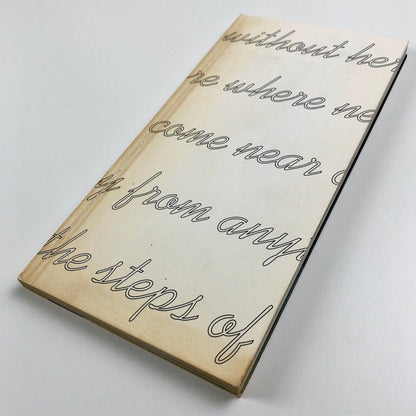 without her
re where ne
come near
g from any
the steps of